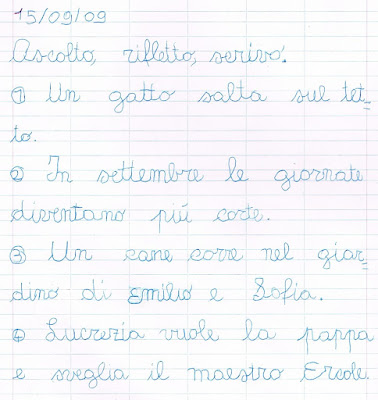 15/09/09
Ascolto, rifletto, scrivo.
① Un gatto salta sul tet=
to.
② In settembre le giornate
diventano piú corte.
③ Un cane corre nel giar=
dino di Emilio e Sofia.
④ Lucrezia vuole la pappa
e sveglia il maestro Ercole.